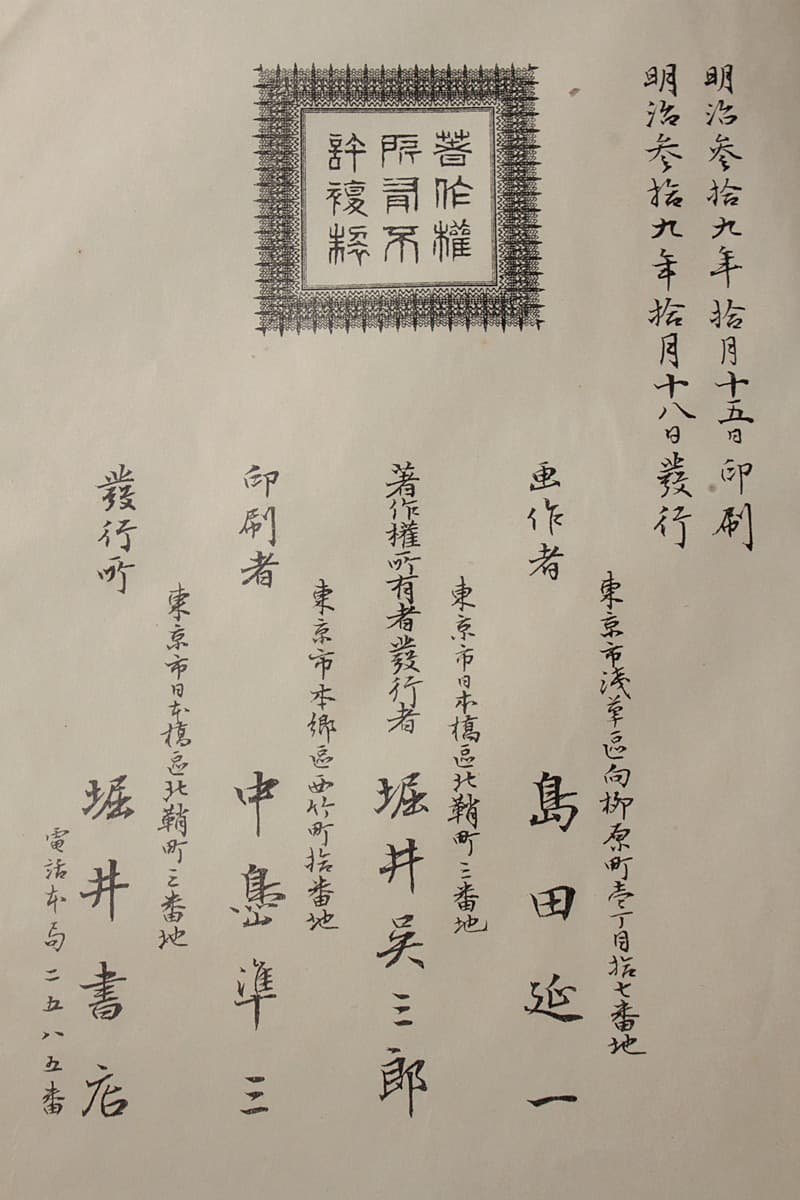 明治参拾九年拾月十五日印刷
明治参拾九年拾月十八日發行
著作權
所有不
許複製
東京市浅草區向柳原町壱丁目拾七番地
画作者 島田延一
東京市日本橋區北鞘町三番地
著作權所有者發行者 堀井吴三郎
東京市本郷區西竹町拾番地
印刷者 中島準三
東京市日本橋區北鞘町三番地
發行所 堀井書店
電話本局二五八五番